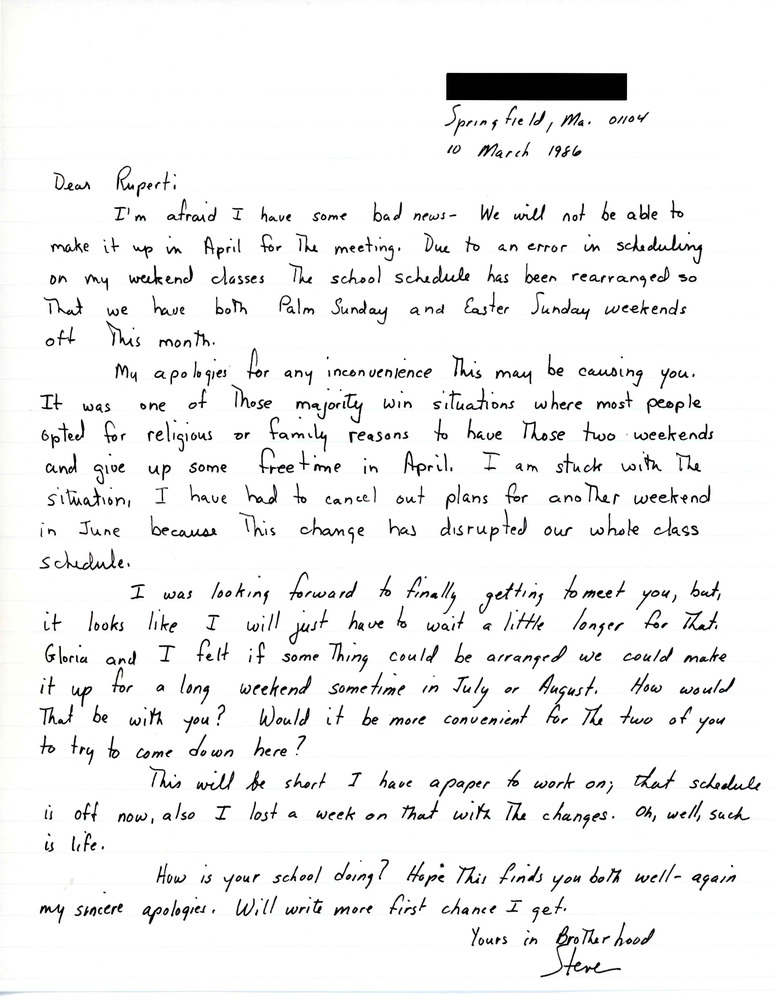 Springfield, Ma. 01104
10 March 1986
Dear Rupert:
I'm afraid I have some bad news- We will not be able to
make it up in April for The meeting. Due to an error in scheduling
on my weekend classes The school schedule has been rearranged so
That we have both Palm Sunday and Easter Sunday weekends
off This month.
My apologies for any inconvenience This may be causing you.
It was one of Those majority win situations where most people
opted for religious or family reasons to have Those two weekends
and give up some freetime in April. I am stuck with The
situation, I have had to cancel out plans for anoTher weekend
in June because This change has disrupted our whole class
schedule.
I was looking forward to finally getting to meet you, but,
it looks like I will just have to wait a little longer for That.
Gloria and I felt if some Thing could be arranged we could make
it up for a long weekend sometime in July or August. How would
That be with you? Would it be more convenient for The two of you
to try to come down here?
This will be short I have a paper to work on; that schedule
is off now, also I lost a week on That with The changes. Oh, well, such
is life.
How is your school doing? Hope This finds you both well- again
my sincere apologies. Will write more first chance I get.
Yours in BroTherhood
Steve